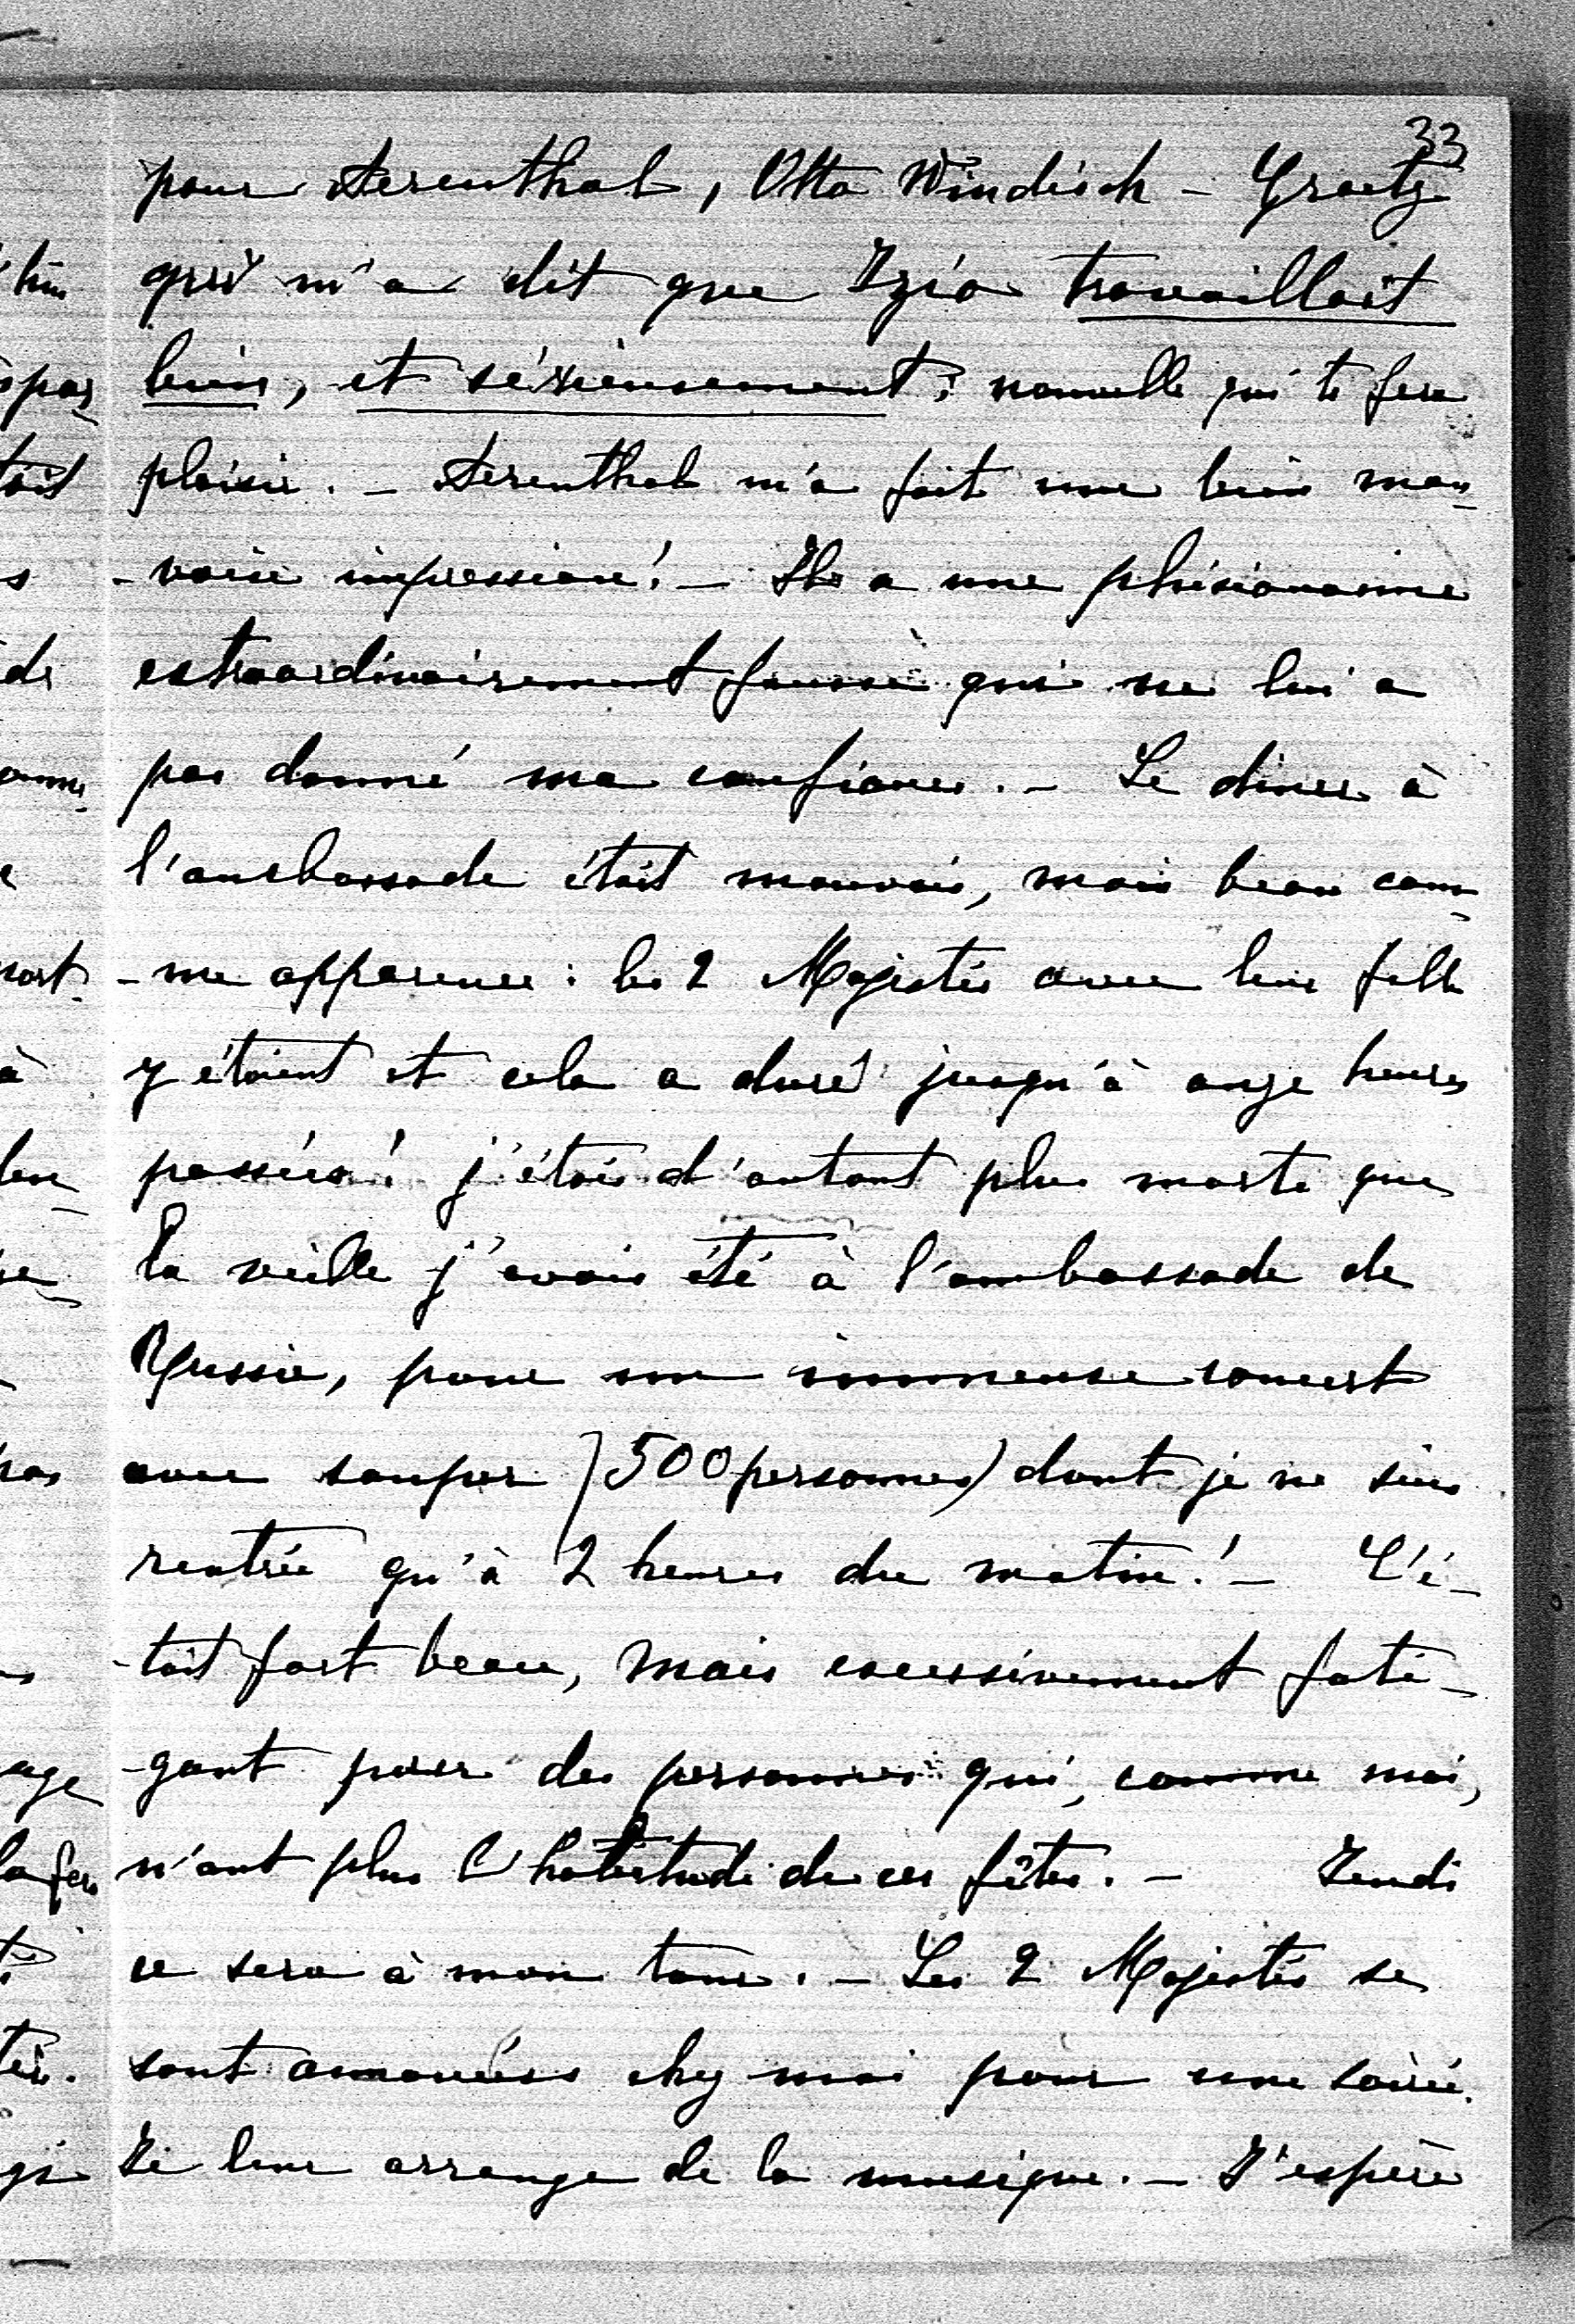 33
pour Aerenthal, Otto Windisch - Graetz
qui m'a dit que Izio travaillait
bien, et sérieusement; nouvelle qui te fera
plaisir. - Aerenthal m'a fait une bien mau-
-vaise impression! - Il a une phisionomie
extraordinairement fausse qui ne lui a
pas donné ma confiance. - Le diner à
l'ambassade était mauvais, mais beau com-
-me apparence: les 2 Majestés avec leur fille
y étaient et cela a duré jusqu'à onze heures
passées! j'étais d'autant plus morte que
la veille j'avais été à l'ambassade de
Russie, pour un immense concert
avec souper (500 personnes) dont je ne suis
rentrée qu'à 2 heures du matin! - C'é-
-tait fort beau, mais excessivement fati-
-gant pour des personnes qui, comme moi,
n'ont plus l'habitude de ces fêtes. - Jeudi
ce sera à mon tour. - Les 2 Majestés se
sont annoncées chez moi pour une soirée.
Je leur arrange de la musique. - J'espère